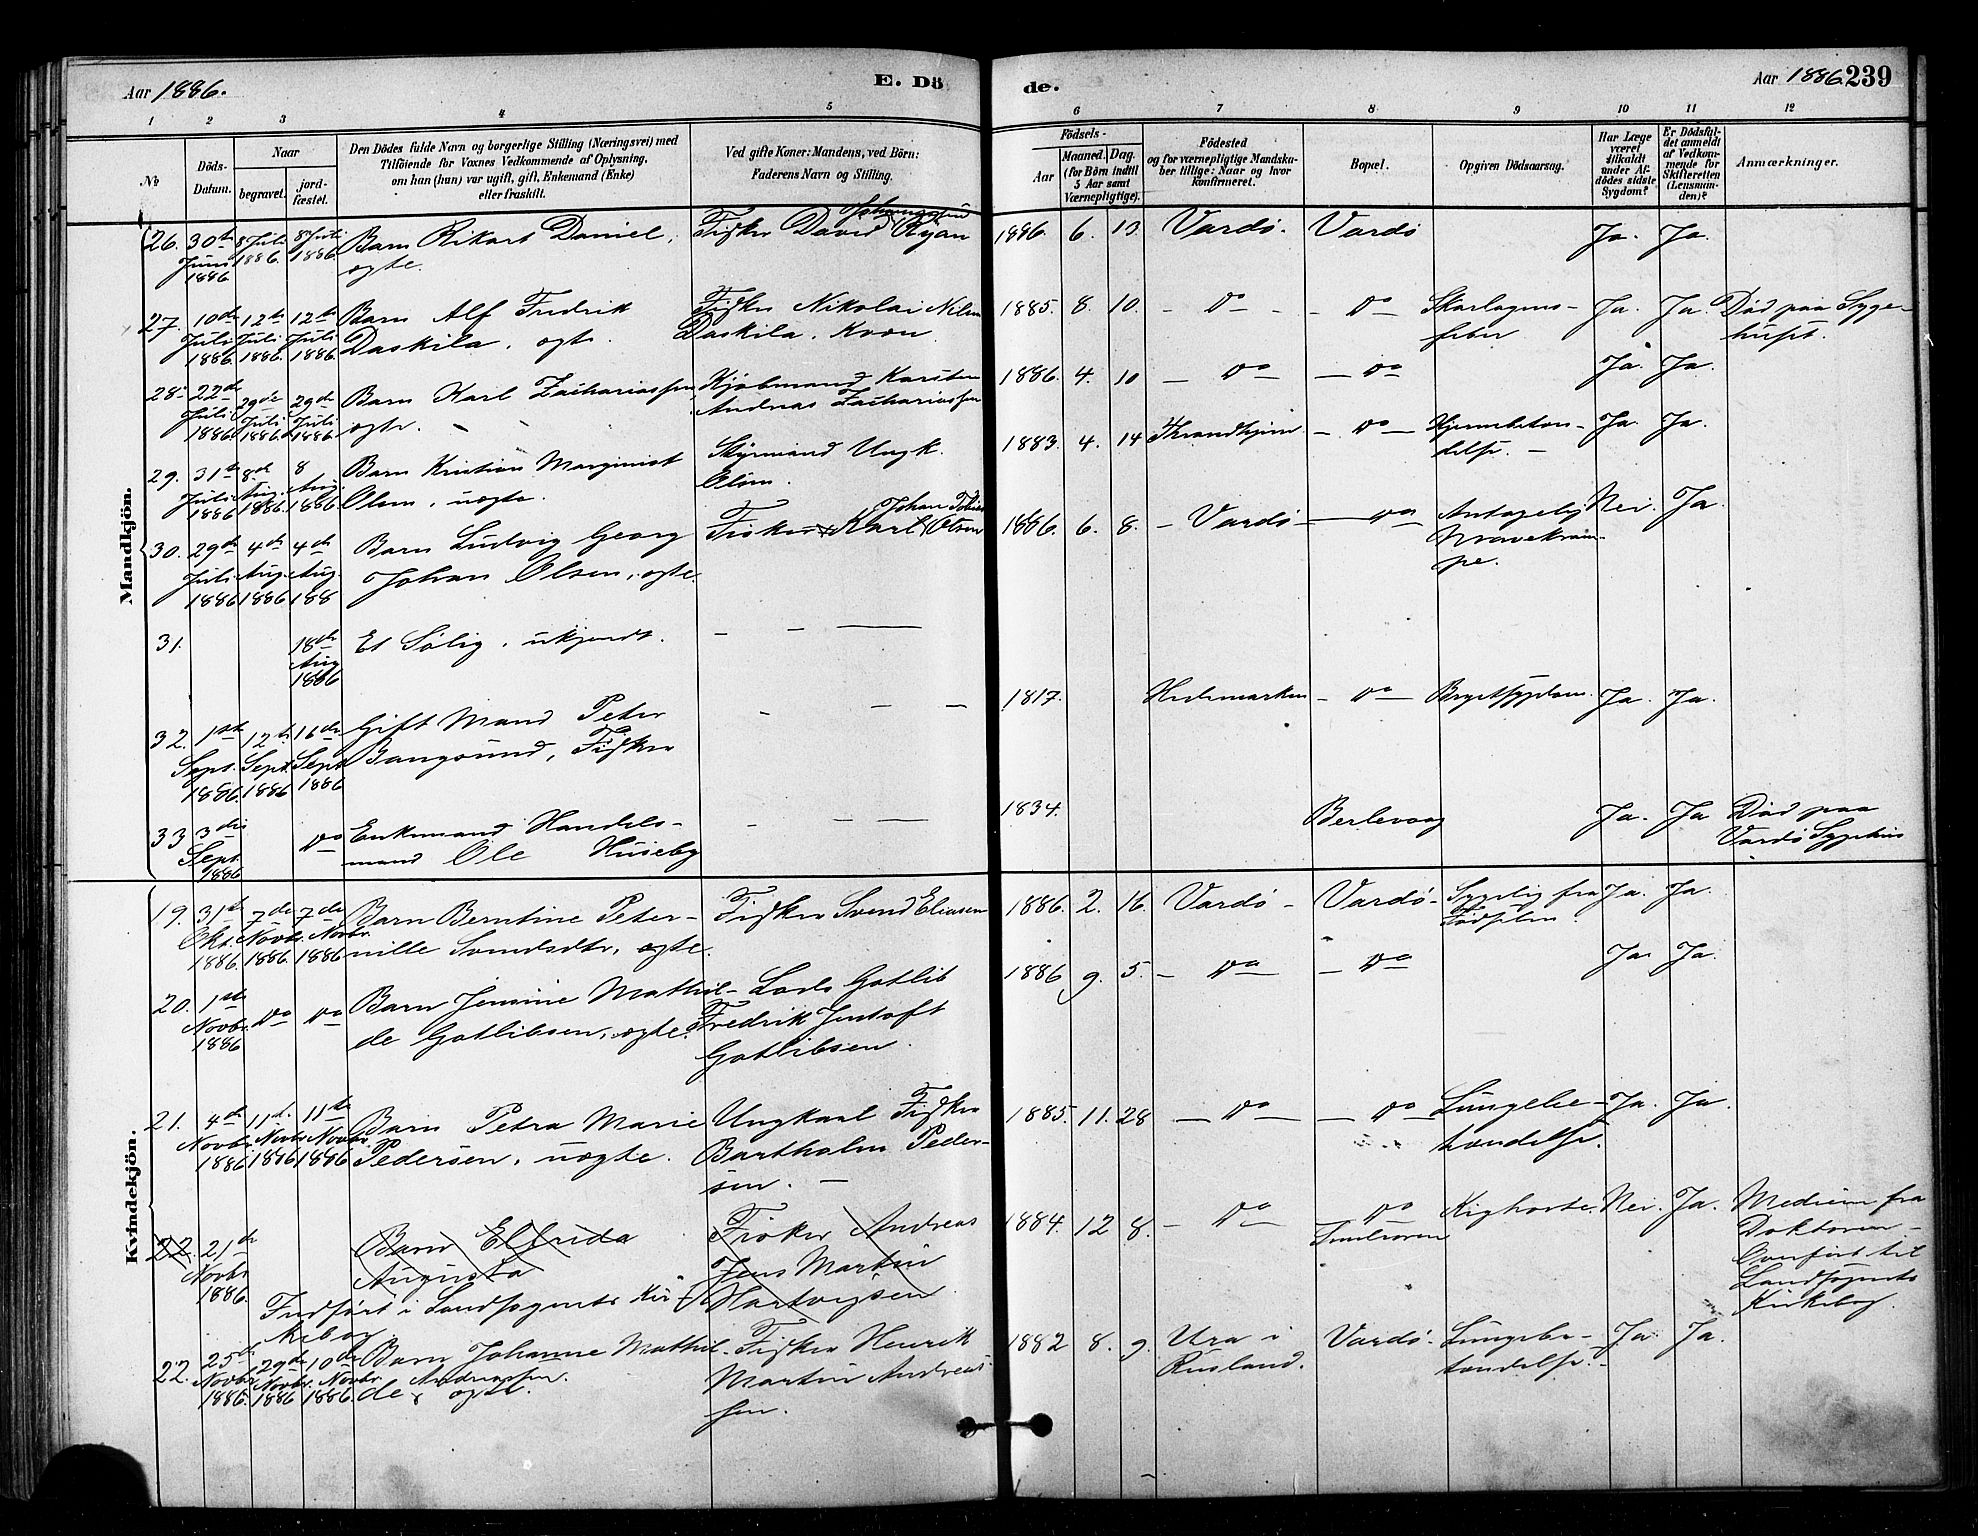 Aar 1886.
E. Dö
de.
Aar 1886. 239
1 2 3 4 5 6 7 8 9 10 11 12
№
Döds-
Datum.
Naar
begravet.
jord-
fæstet.
Den Dödes fulde Navn og borgerlige Stilling (Næringsvei) med
Tilföiende for Voxnes Vedkommende af Oplysning,
om han (hun) var ugift, gift, Enkemand (Enke)
eller fraskilt.
Ved gifte Koner: Mandens, ved Börn:
Faderens Navn og Stilling.
Födsels-
Aar
Maaned. Dag.
(for Börn indtil
5 Aar samt
Værnepligtige).
Födested
og for værnepligtige Mandska-
ber tillige: Naar og hvor
konfirmeret.
Bopæl.
Opgiven Dödsaarsag.
Har Læge
været
tilkaldt
under Af-
dödes sidste
Sygdom?
Er Dödsfal-
det anmeldt
af Vedkom-
mende for
Skifteretten
(Lensman-
den)?
Anmærkninger.
Mandkjön.
26. 30te Juni 1886 8 Juli 1886. 8 Juli 1886.
Barn Rikart Daniel,
ægte.
Fisker David Kyan
1886. 6. 13. Vardö. Vardö Ja. Ja.
27. 10de Juli 1886 12te Juli 1886. 12te Juli 1886.
Barn Alf Fredrik
Daskila, ægte.
Fisker Nikolai Nilsen
Daskila, Kvæn.
1885. 8. 10. - Do - - Do Skarlagens-
feber Ja. Ja. Död paa Syge-
huset.
28. 22de Juli 1886 29de Juli 1886. 29de Juli 1886
Barn Karl Zachariassen,
ægte.
Kjöbmand Karsten
Andreas Zachariassen
1886. 4. 10 - Do - - Do Ja. Ja.
29. 31te Juli 1886 8de Aug. 1886. 8 Aug. 1886
Barn Kristian Marginius
Olsen, uægte.
Styrmand Ungk.
Olsen.
1883. 4. 14 Throndhjem - Do - Hjernebeten-
delse. Ja. Ja.
30. 29de Juli 1886 4de Aug. 1886 4de Aug. 188
Barn Ludvig Georg
Johan Olsen, ægte.
Johan Tobias
Fisker Karl Olsen
1886. 6. 8. - Vardö - Do Antagelig
Mavekram-
pe. Nei. Ja.
31. 18de Aug 1886
Et Sölig, ukjendt.
32. 1ste Sept. 1886. 12te Sept. 1886 16de Sept. 1886
Gift Mand Peter
Bangsund, Fisker
1817. Hedemarken - Do - Brystsygdom. Ja. Ja.
33 3die Sept. 1886 Do
Enkemand Handels-
mand Ole Huseby
1834. Berlevaag Ja. Ja Död paa
Vardö Sygehus
Kvindekjön.
19. 31te Okt. 1886. 7de Novbr. 1886. 7de Novbr. 1886
Barn Berntine Peter-
nille Svendsdtr, ægte.
Fisker Svend Eliasen
1886. 2. 16. Vardö - Vardö - Sygelig fra
Födselen. Ja. Ja.
20. 1ste Novbr. 1886 Do Do
Barn Jensine Mathil-
de Gotlibsen, ægte.
Lods Gotlib
Fredrik Jentoft
Gotlibsen.
1886 9. 5. - Do - Do Ja. Ja.
21. 4de Novbr. 1886 11te Novbr 1886 11te Novbr. 1886
Barn Petra Marie
Pedersen, uægte.
Ungkarl Fisker
Bartholm Peder-
sen.
1885. 11. 28 - Do - - Do Lungebe-
tændelse. Ja. Ja.
22. 21de Novbr 1886.
Barn Elfrida
Augusta
Indfört i Landsognets Kir-
kebog
Fisker Andreas
Jens Martin
Hartvigsen.
1884. 12 8. - Do - Do Kighoste. Nei. Ja. Medicin fra
Doktoren -
Overfört til
Landsognets
Kirkebog.
22. 25de Novbr 1886. 29de Novbr. 1886 10de Novbr. 1886.
Barn Johanne Mathil-
de Andreassen, ægte.
Fisker Henrik
Martin Andreas-
sen.
1882 8. 9. Ura i
Rusland. Vardö. Lungebe-
tændelse. Ja. Ja.